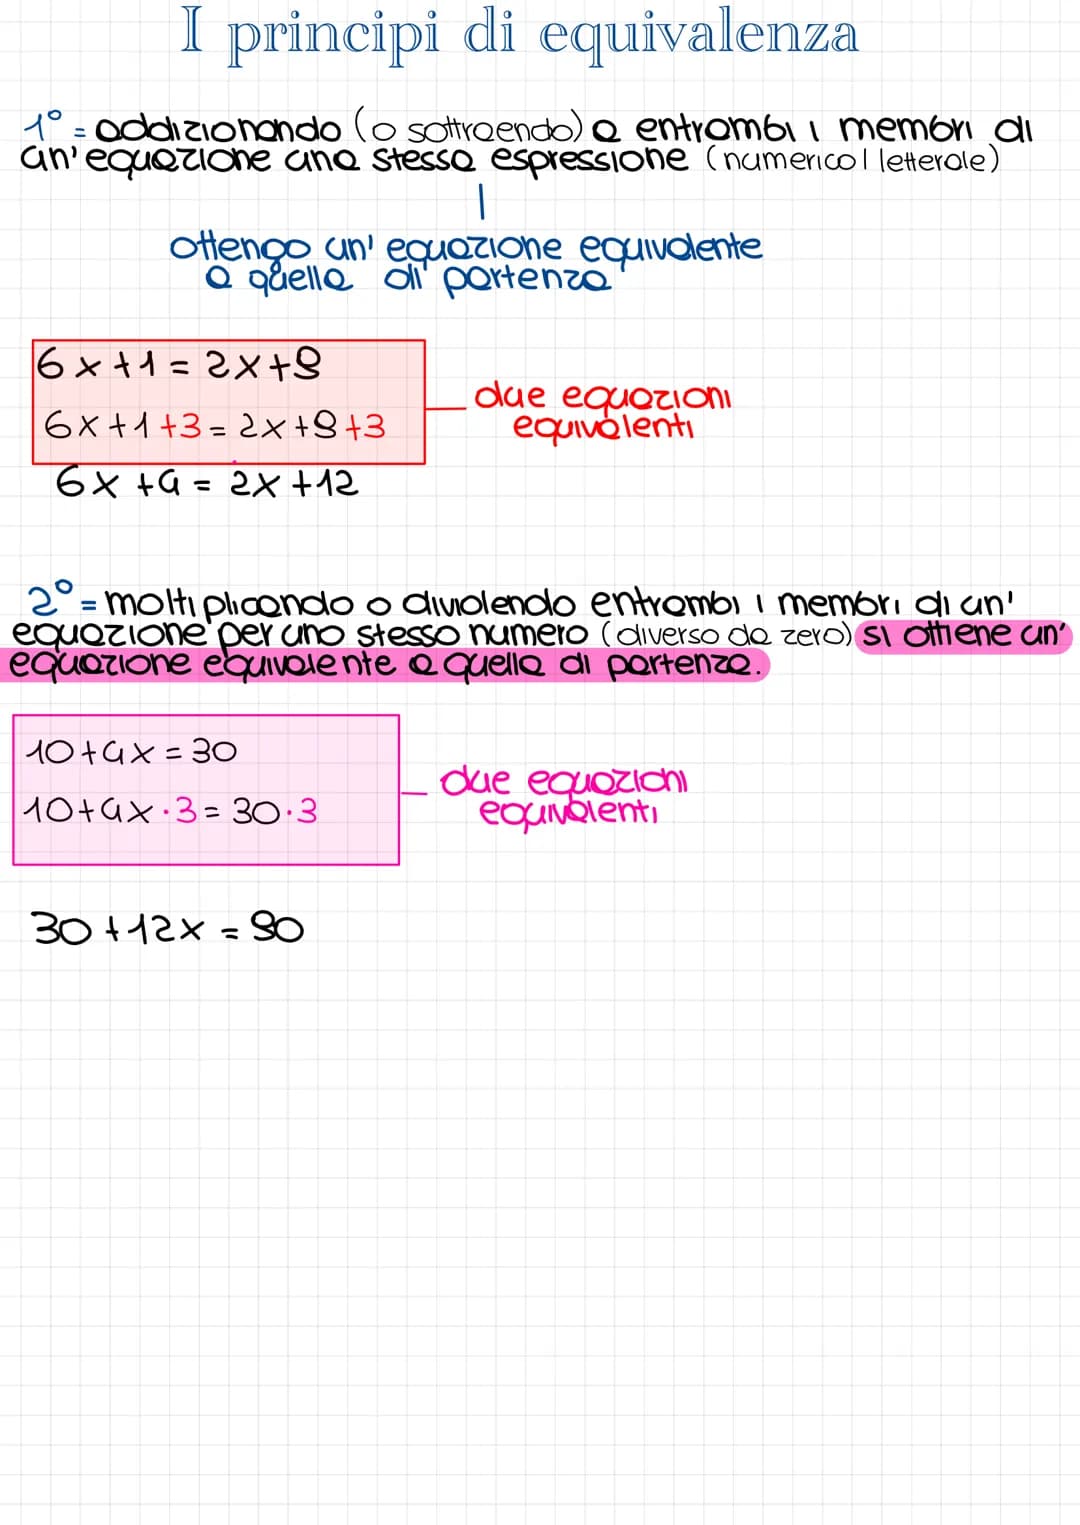 I principi di equivalenza
1° = addizionando (o sottraendo) a entrambi i membri di
un' equazione una stessa espressione (numerica | letterale)
ottengo un' equazione equivalente
a quella di partenza
6x+1 = 2x+9
6x+1+3 = 2x+9+3
due equazioni
equivalenti
6x +4 = 2x +12
2° = moltiplicando o dividendo entrambi i membri di un'
equazione per uno stesso numero (diverso da zero) si ottiene un'
equazione equivalente a quella di partenza.
10+4x = 30
10+4x·3 = 30·3
due equazioni
equivalenti
30 +12x = 90